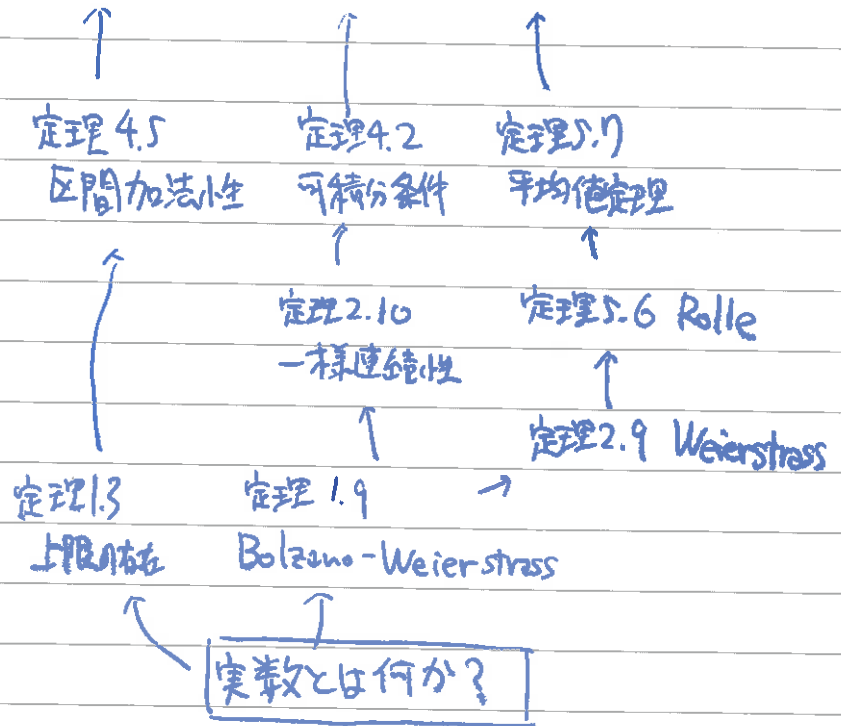 定理4.5
区間加法性
定理4.2
可積分条件
定理5.7
平均値定理
定理2.10
一様連続性
定理5.6 Rolle
定理2.9 Weierstrass
定理1.3
上限の存在
定理 1.9
Bolzano-Weierstrass
実数とは何か?